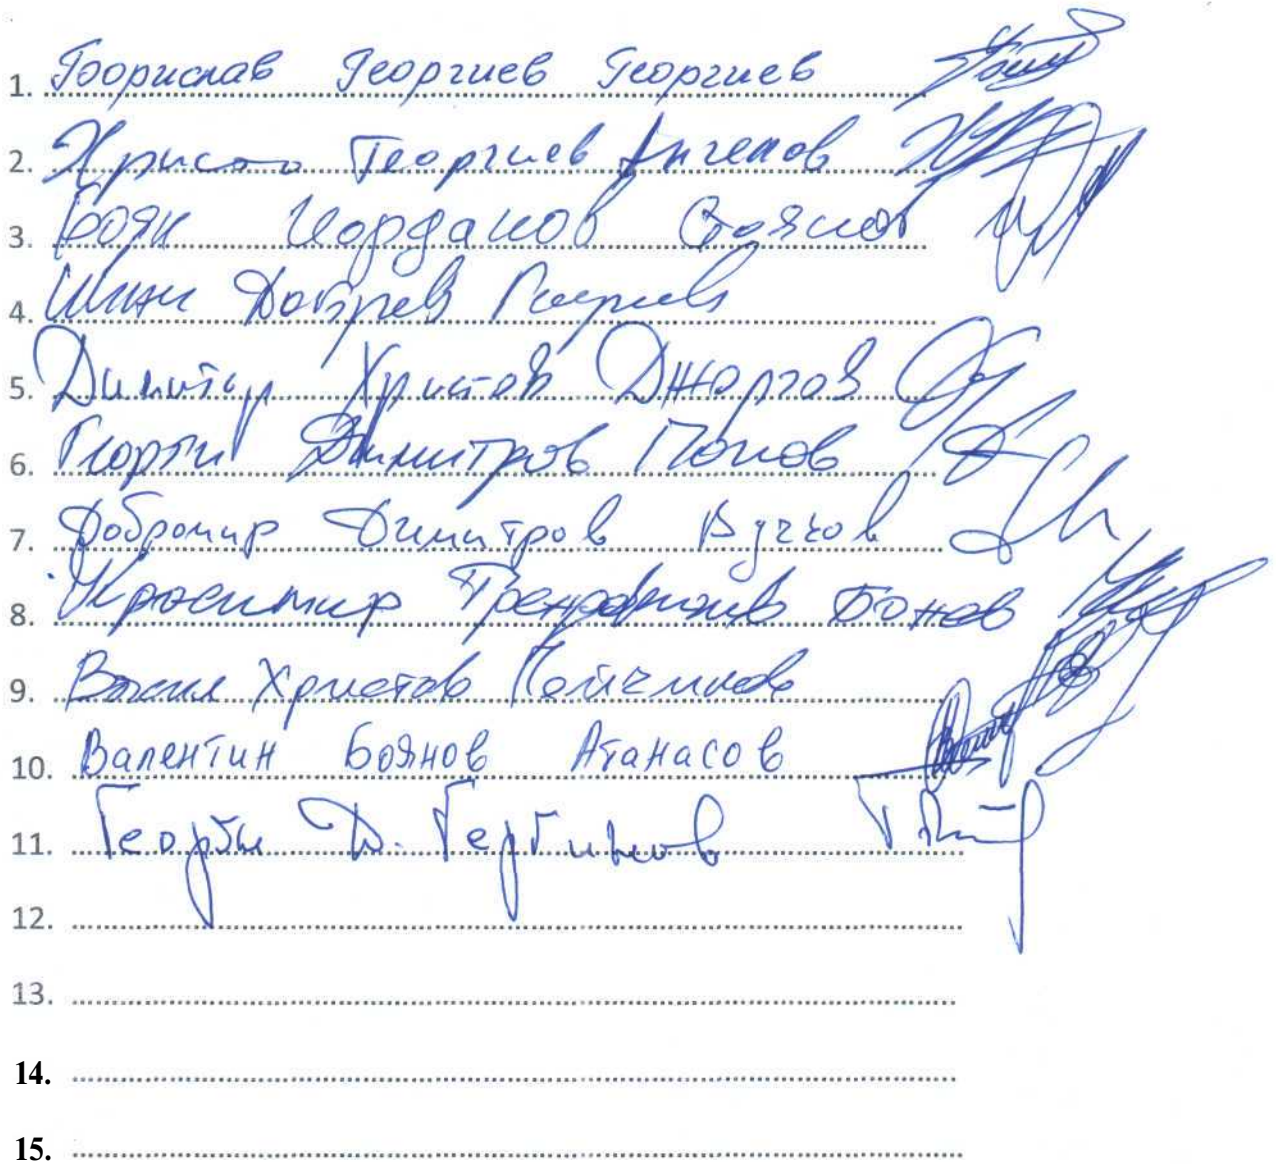 1. Борислав Георгиев Георгиев
2. Христо Георгиев Ангелов
3. Боян Йорданов Стоянов
4. Добрев
5. Димитър Христов Джоргов
6. Георги Димитров Попов
7. Добромир Димитров Вучков
8. Красимир Трендафилов Бонев
9. Васил Христов
10. Валентин Боянов Атанасов
11. Георги Д. Гергинов
12.
13.
14.
15.